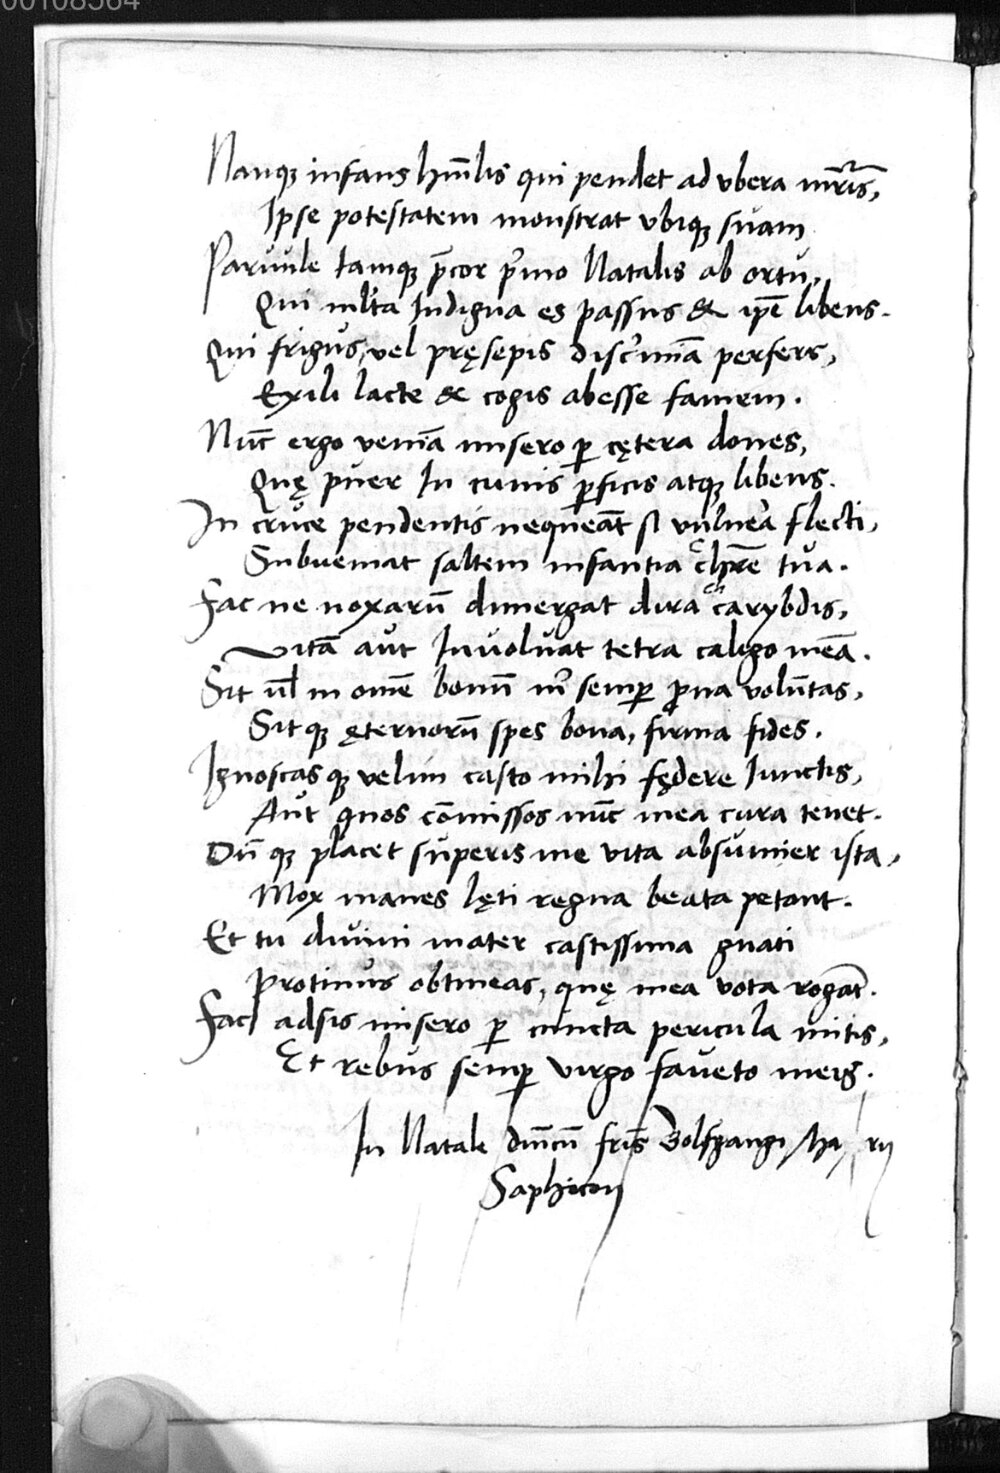 00108564
Nanq₃ infans hūīlis qui pendet ad vbera mr̄is,
Ipse potestatem monstrat vbiq₃ suam
Paruule tamq₃ p̄cor p'mo Natalis ab ortu,
Qui ml'ta Indigna es passus & ip̄e libens.
Qui frigus, vel pręsepis disc'miā perfers,
Exili lacte & cogis abesse famem.
Nūc ergo veniā misero ꝑ cętera dones,
Quę puer In cunis ꝑficis atq₃ libens.
In cruce pendentis nequeāt si vulnera flecti,
Subueniat saltem infantia chr̄e tua.
Fac ne noxarū dimergat dira charybdis,
Vitā aut Inuoluat tetra caligo meā.
Sit vl̄ in om̄e bonū m' semꝑ ꝓna volūtas,
Sit q₃ ęternorū spes bona, firma fides.
Ignoscas q₃ velim casto mihi fędere Iunctis,
Aut quos cōmissos nūc mea cura tenet.
Dū q₃ placet superis me vita absumier ista,
Mox manes lęti regna beata petant.
Et tu diuini mater castissima gnati
Protinus obtineas, quę mea vota rogāt.
Fac adsis misero ꝑ cuncta pericula mitis,
Et rebus semꝑ virgo faueto meis.
In Natale fr̄is Bolfgangi
Saphicon